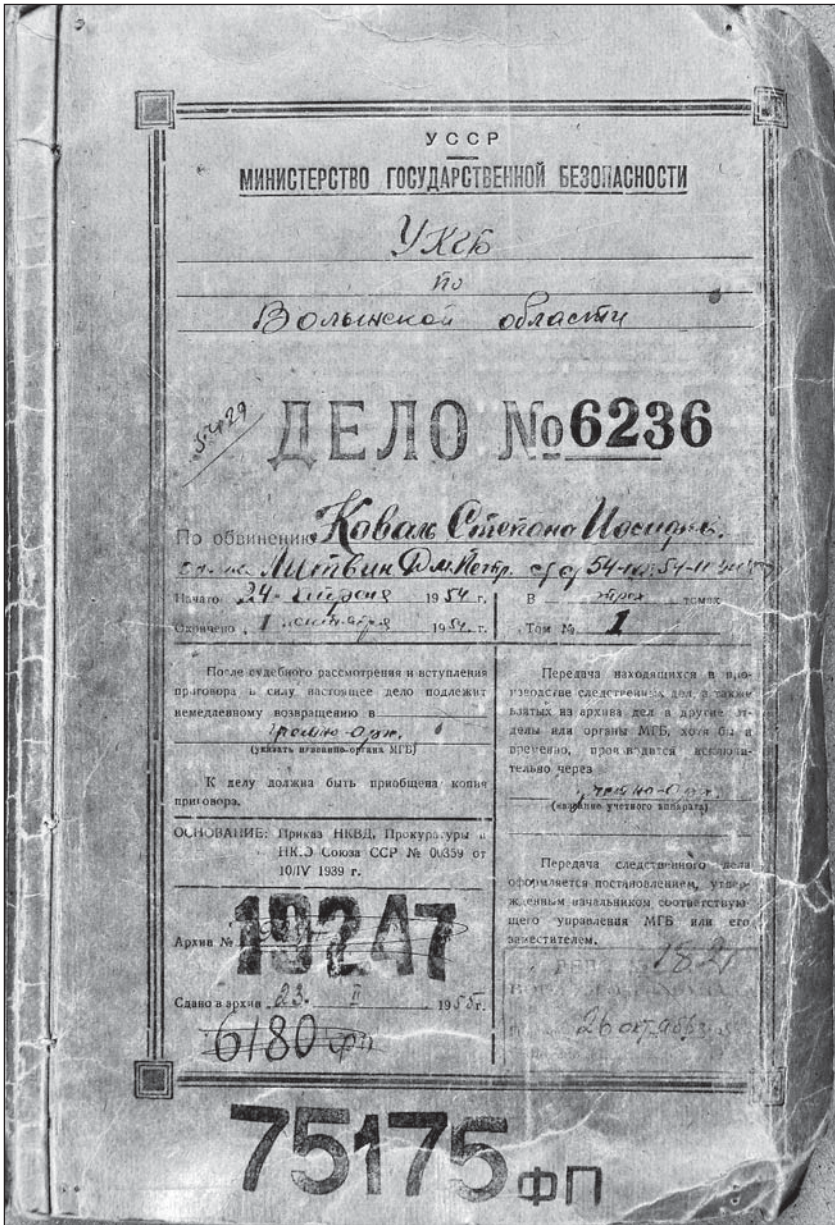 УССР
МИНИСТЕРСТВО ГОСУДАРСТВЕННОЙ БЕЗОПАСНОСТИ
УКГБ
по
Волынской области
ДЕЛО №6236
По обвинению Коваль Степана
Литвин Дм. Петр.
Начато 24 1954 г.
Окончено 1 1954 г.
В трех томах
Том № 1
После судебного рассмотрения и вступления
приговора в силу настоящее дело подлежит
немедленному возвращению в
(указать название органа МГБ)
К делу должна быть приобщена копия
приговора.
ОСНОВАНИЕ: Приказ НКВД, Прокуратуры и
НКЮ Союза ССР № 00359 от
10/IV 1939 г.
Архив № 19247
Сдано в архив 23. II 1955г.
6180 фп
Передача находящихся в про-
изводстве следственных дел, а также
взятых из архива дел в другие от-
делы или органы МГБ, хотя бы и
временно, производится исключи-
тельно через
(название учетного аппарата)
Передача следственного дела
оформляется постановлением, утвер-
жденным начальником соответствую-
щего управления МГБ или его
заместителем.
26 октября
75175 ФП